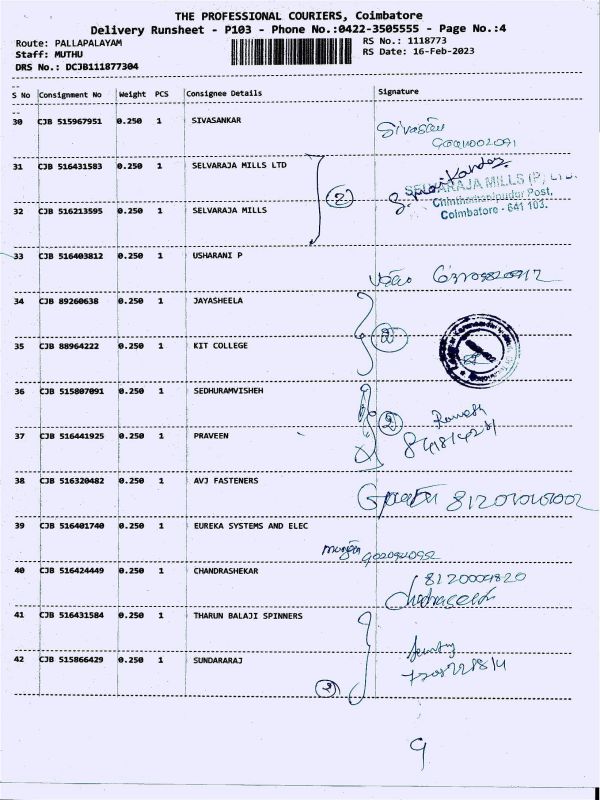 THE PROFESSIONAL COURIERS, Coimbatore
Delivery Runsheet - P103 - Phone No.:0422-3505555 - Page No.:4
Route: PALLAPALAYAM
Staff: MUTHU
DRS No.: DCJB111877304
RS No.: 1118773
RS Date: 16-Feb-2023
S No Consignment No Weight PCS Consignee Details Signature
30 CJB 515967951 0.250 1 SIVASANKAR
31 CJB 516431583 0.250 1 SELVARAJA MILLS LTD
SELVARAJA MILLS (P) LTD.
Chinthamanipudur Post,
Coimbatore - 641 103.
2
32 CJB 516213595 0.250 1 SELVARAJA MILLS
33 CJB 516403812 0.250 1 USHARANI P
34 CJB 89260638 0.250 1 JAYASHEELA
2
35 CJB 88964222 0.250 1 KIT COLLEGE
36 CJB 515807091 0.250 1 SEDHURAMVISHEH
Ramesh
2
37 CJB 516441925 0.250 1 PRAVEEN
38 CJB 516320482 0.250 1 AVJ FASTENERS
39 CJB 516401740 0.250 1 EUREKA SYSTEMS AND ELEC
40 CJB 516424449 0.250 1 CHANDRASHEKAR
8120009820
41 CJB 516431584 0.250 1 THARUN BALAJI SPINNERS
42 CJB 515866429 0.250 1 SUNDARARAJ
2
9